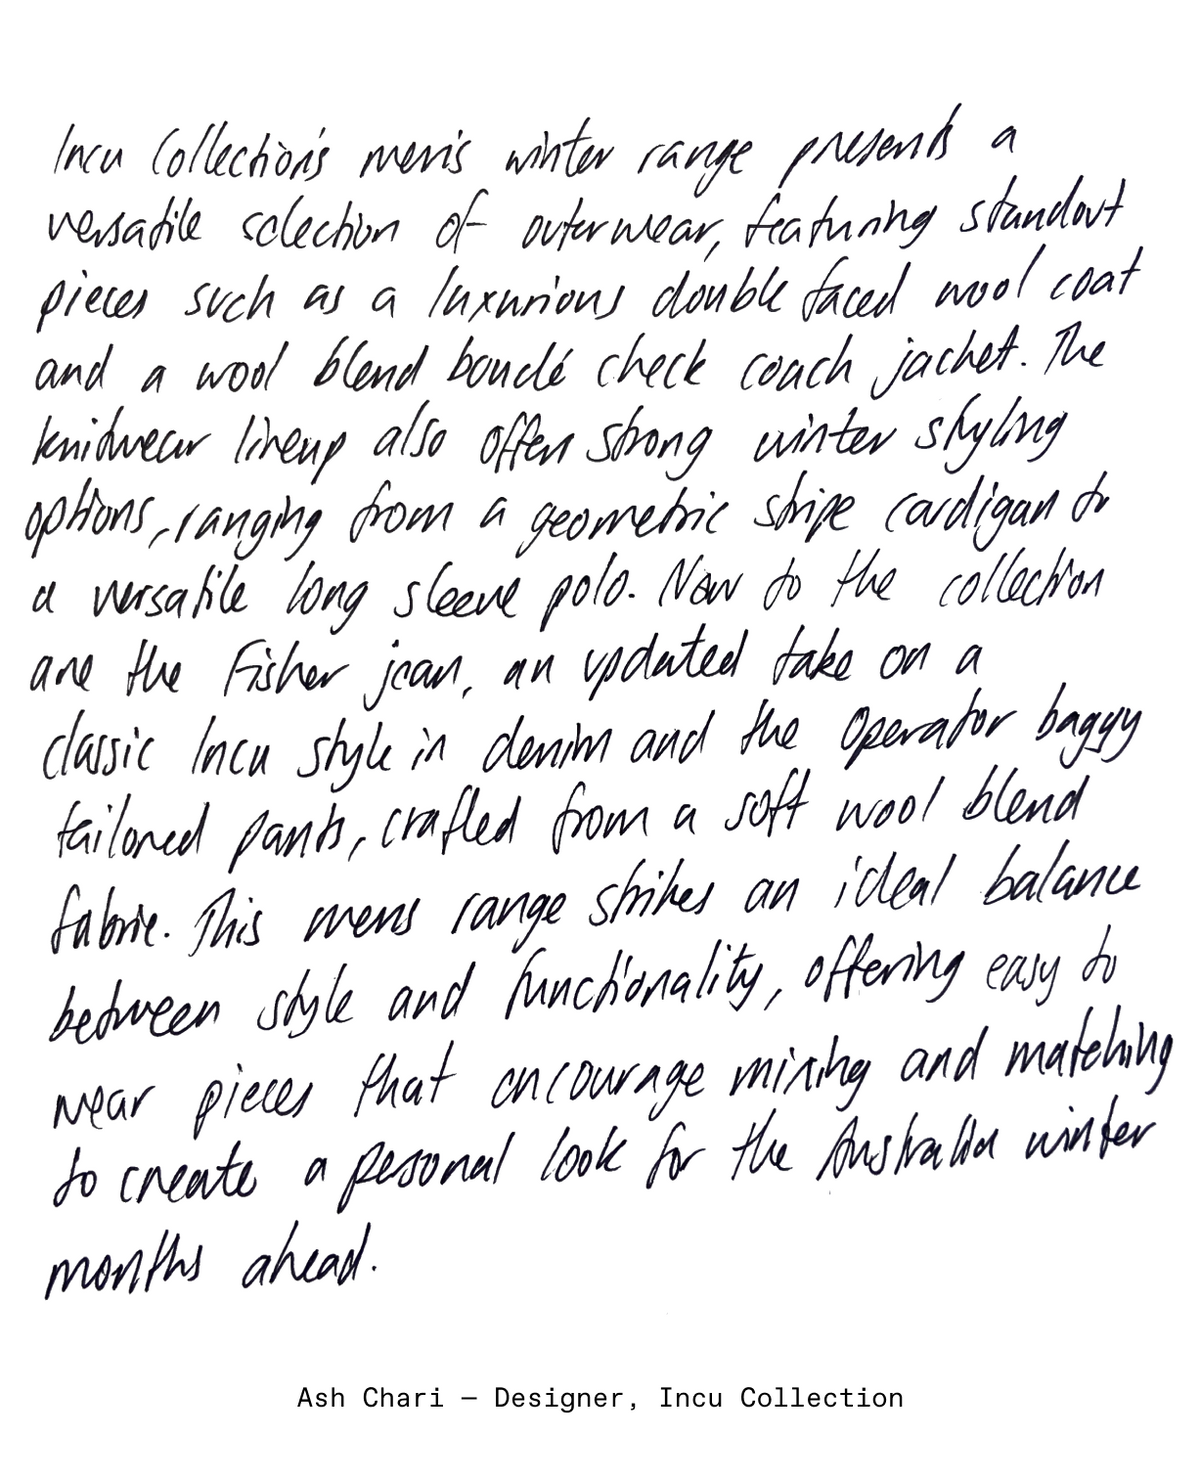 Incu Collection's men's winter range presents a
versatile selection of outerwear, featuring standout
pieces such as a luxurious double faced wool coat
and a wool blend bouclé check coach jacket. The
knitwear lineup also offers strong winter styling
options, ranging from a geometric stripe cardigan to
a versatile long sleeve polo. New to the collection
are the Fisher jean, an updated take on a
classic Incu style in denim and the Operator baggy
tailored pants, crafted from a soft wool blend
fabric. This mens range strikes an ideal balance
between style and functionality, offering easy to
wear pieces that encourage mixing and matching
to create a personal look for the Australia winter
months ahead.
Ash Chari — Designer, Incu Collection